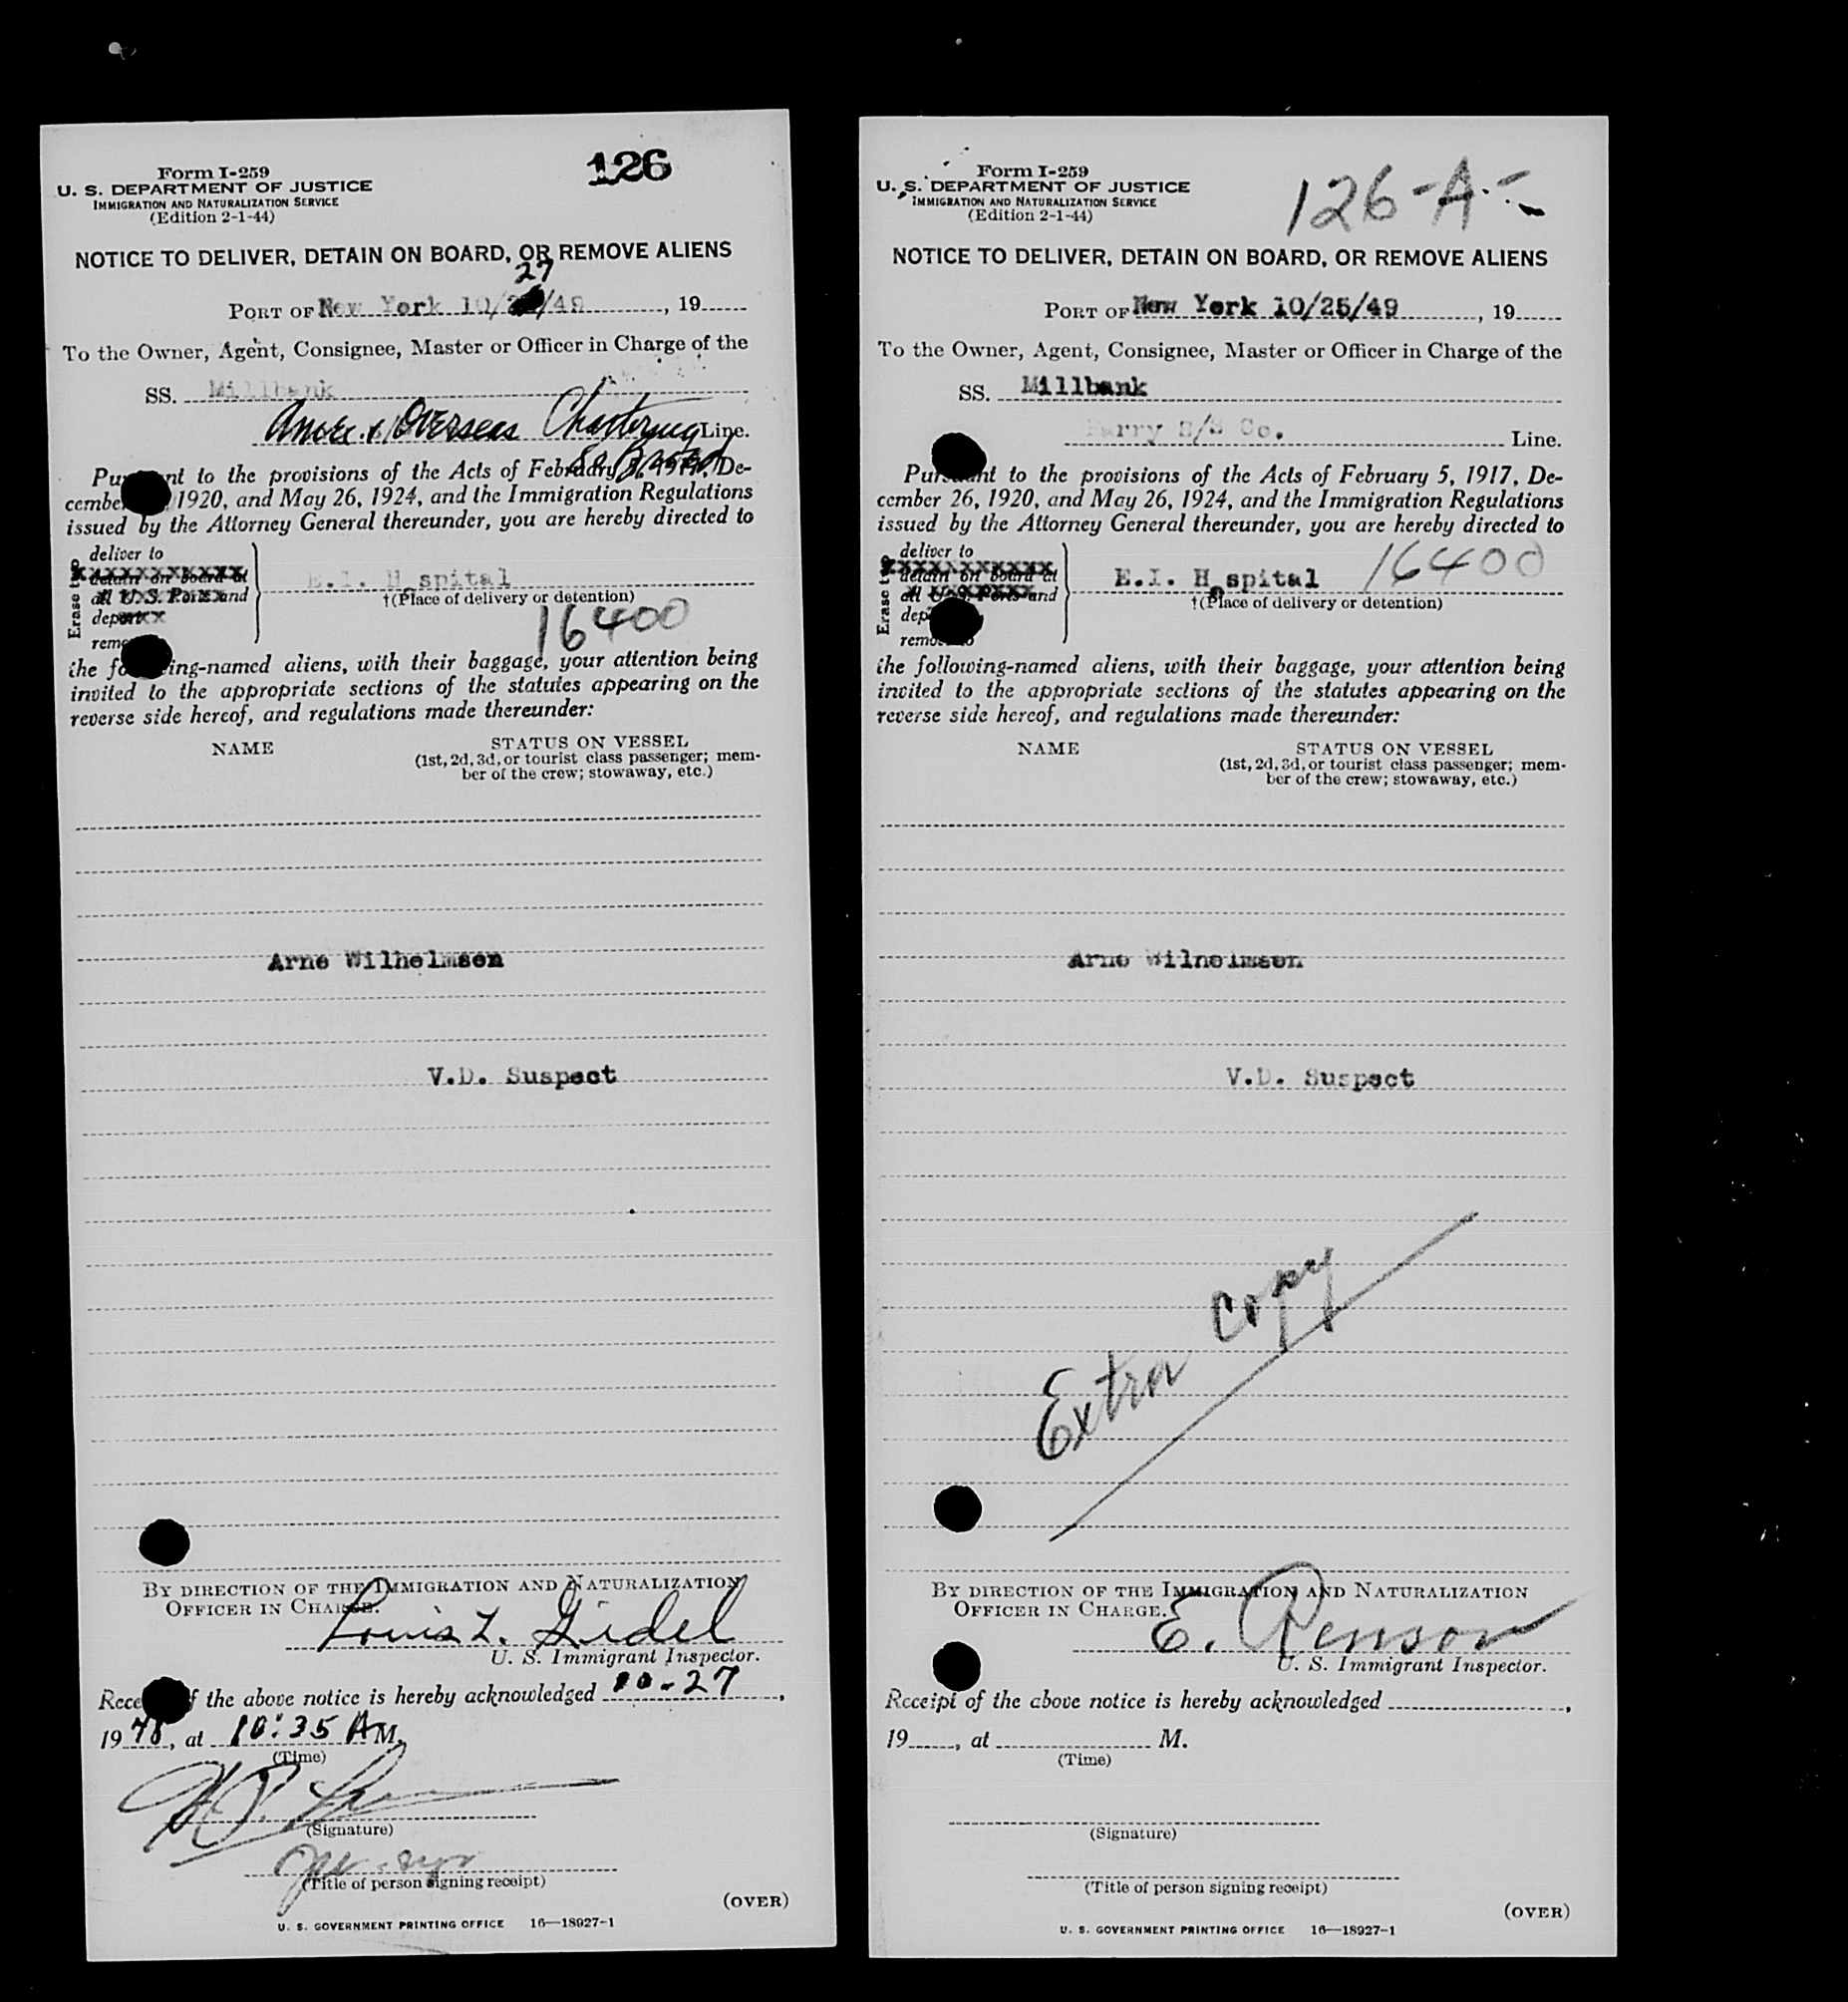 126
Form I-259
U. S. DEPARTMENT OF JUSTICE
IMMIGRATION AND NATURALIZATION SERVICE
(Edition 2-1-44)
NOTICE TO DELIVER, DETAIN ON BOARD, OR REMOVE ALIENS
27
PORT OF New York 10/ /49, 19
To the Owner, Agent, Consignee, Master or Officer in Charge of the
SS. Millbank
Overseas Chartering Line.
to the provisions of the Acts of February 5, 1917, De-
cember 1920, and May 26, 1924, and the Immigration Regulations
issued by the Attorney General thereunder, you are hereby directed to
Erase
deliver to
detain on board at
all U.S. Ports and
deport
E.I. H spital
†(Place of delivery or detention)
16400
the following-named aliens, with their baggage, your attention being
invited to the appropriate sections of the statutes appearing on the
reverse side hereof, and regulations made thereunder:
NAME
STATUS ON VESSEL
(1st, 2d, 3d, or tourist class passenger; mem-
ber of the crew; stowaway, etc.)
Arne Wilhelmsen
V.D. Suspect
BY DIRECTION OF THE IMMIGRATION AND NATURALIZATION
OFFICER IN CHARGE.
Louis L. Gidel
U. S. Immigrant Inspector.
of the above notice is hereby acknowledged 10-27,
19 , at 10:35 A M.
(Time)
(Signature)
(Title of person signing receipt)
(OVER)
U. S. GOVERNMENT PRINTING OFFICE 16—18927-1
126-A-
Form I-259
U. S. DEPARTMENT OF JUSTICE
IMMIGRATION AND NATURALIZATION SERVICE
(Edition 2-1-44)
NOTICE TO DELIVER, DETAIN ON BOARD, OR REMOVE ALIENS
PORT OF New York 10/25/49, 19
To the Owner, Agent, Consignee, Master or Officer in Charge of the
SS. Millbank
S/S Co. Line.
Pursuant to the provisions of the Acts of February 5, 1917, De-
cember 26, 1920, and May 26, 1924, and the Immigration Regulations
issued by the Attorney General thereunder, you are hereby directed to
Erase
deliver to
detain on board at
all U.S. Ports and
E.I. H spital 16400
†(Place of delivery or detention)
the following-named aliens, with their baggage, your attention being
invited to the appropriate sections of the statutes appearing on the
reverse side hereof, and regulations made thereunder:
NAME
STATUS ON VESSEL
(1st, 2d, 3d, or tourist class passenger; mem-
ber of the crew; stowaway, etc.)
Arne Wilhelmsen
V.D. Suspect
Extra copy
BY DIRECTION OF THE IMMIGRATION AND NATURALIZATION
OFFICER IN CHARGE.
E. Penson
U. S. Immigrant Inspector.
Receipt of the above notice is hereby acknowledged ,
19 , at M.
(Time)
(Signature)
(Title of person signing receipt)
(OVER)
U. S. GOVERNMENT PRINTING OFFICE 16—18927-1